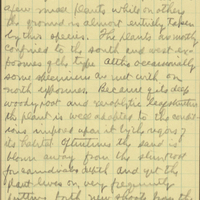 a few small plants while on others
the ground is almost entirely taken
by this species. The plant is mostly
confined to the south and west ex-
posures of the type. Altho occasionally
some specimens are met with on
north exposures. Because of its deep
woody root and xerophytic
the plant is well adapted to the condi-
tions imposed upon it by the rigors of
its habitat. Oftentimes the sand is
blown away from the stem root
for considerable depth and yet the
plant lives on, very frequently
putting forth new shoots from the